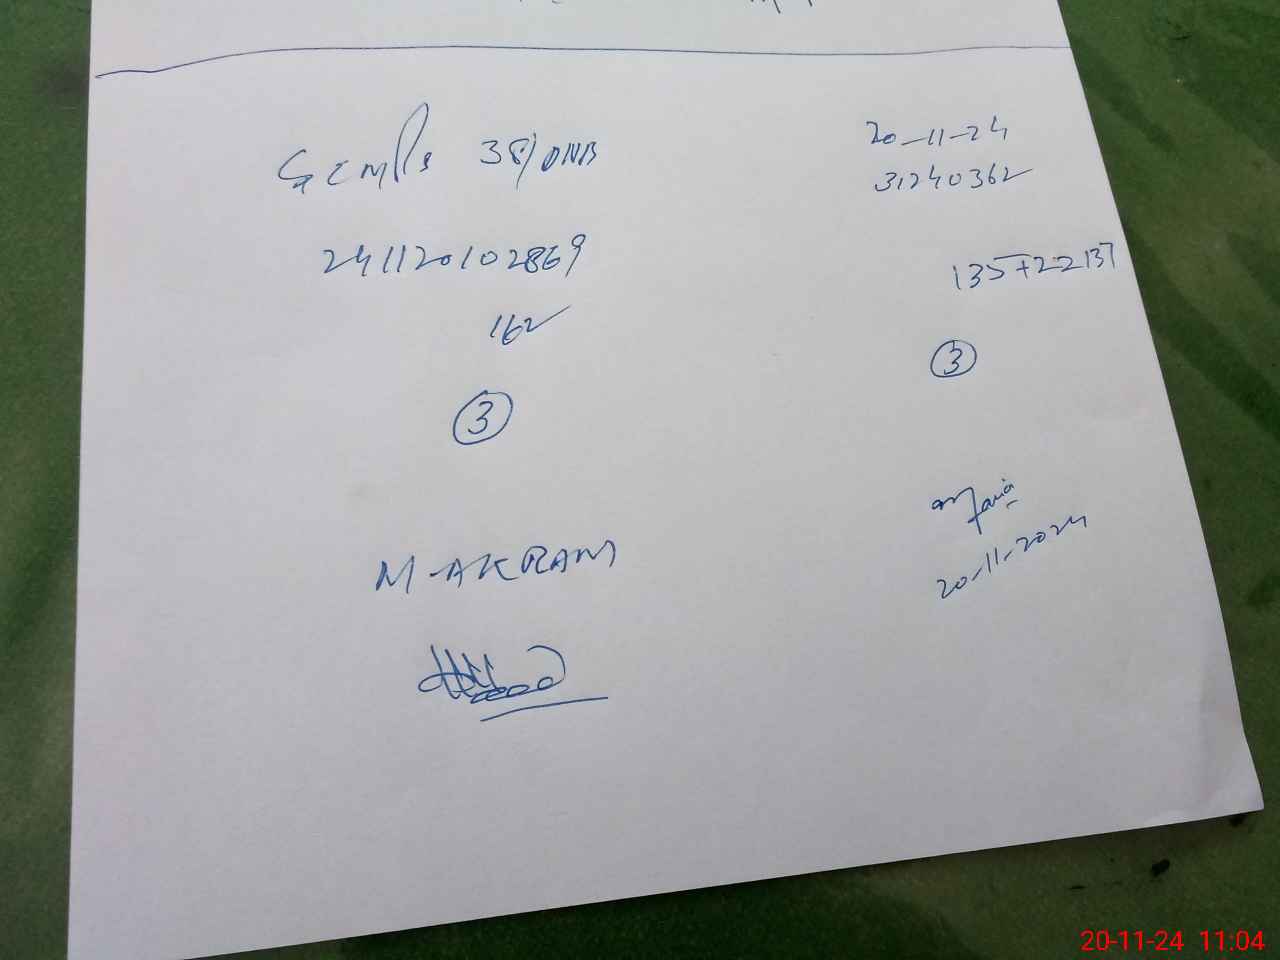 GEMPs 38/DNB
20-11-24
31240362
241120102869
135722137
162
3
3
M-AKRAM
20-11-2024
20-11-24 11:04